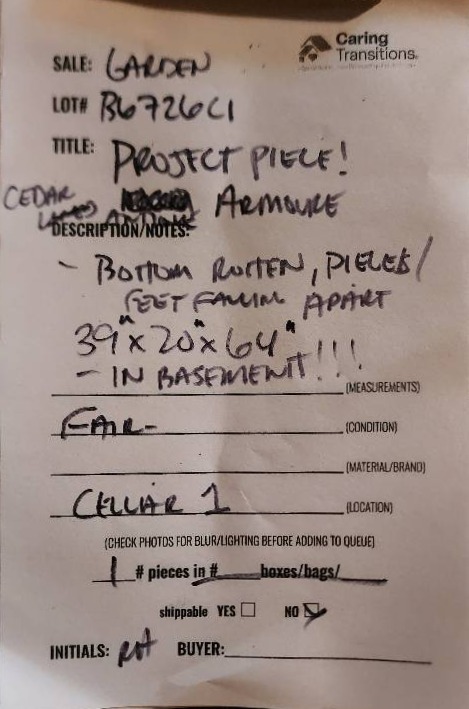 Caring
Transitions.
SALE: GARDEN
LOT# B6726C1
TITLE: PROJECT PIECE!
CEDAR ARMOURE
LINED ANTIQUE
DESCRIPTION/NOTES:
- BOTTOM ROTTEN, PIECES/
FEET FALLIN APART
39"x20"x64"
- IN BASEMENT!!!
(MEASUREMENTS)
FAIR- (CONDITION)
(MATERIAL/BRAND)
CELLAR 1 (LOCATION)
(CHECK PHOTOS FOR BLUR/LIGHTING BEFORE ADDING TO QUEUE)
1 # pieces in # boxes/bags/
shippable YES NO
INITIALS: BUYER: